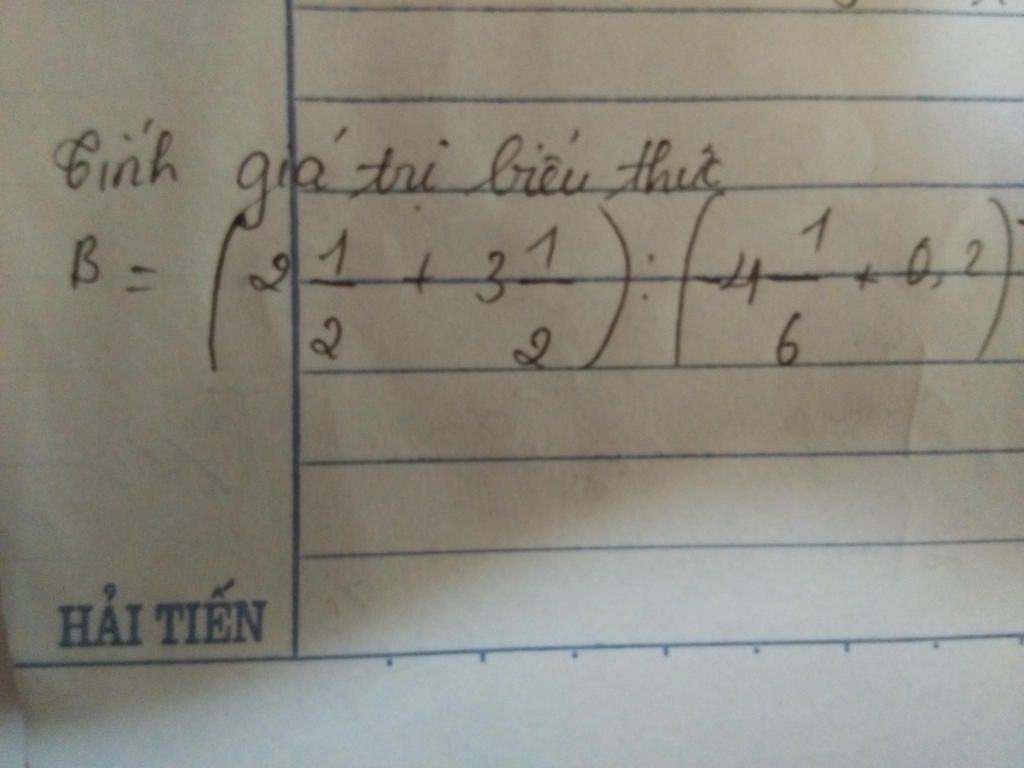 Tính giá trị biểu thức
B = (2 1/2 + 3 1/2) : (-4 1/6 + 0,2)
HẢI TIẾN